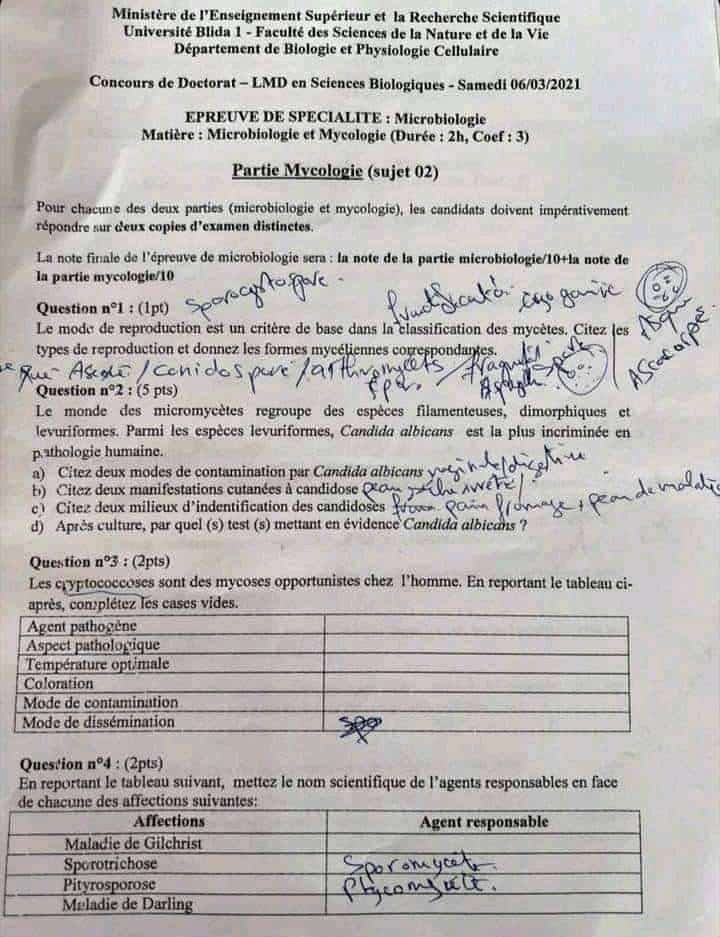 Ministère de l'Enseignement Supérieur et la Recherche Scientifique
Université Blida 1 - Faculté des Sciences de la Nature et de la Vie
Département de Biologie et Physiologie Cellulaire
Concours de Doctorat – LMD en Sciences Biologiques - Samedi 06/03/2021
EPREUVE DE SPECIALITE : Microbiologie
Matière : Microbiologie et Mycologie (Durée : 2h, Coef : 3)
Partie Mycologie (sujet 02)
Pour chacune des deux parties (microbiologie et mycologie), les candidats doivent impérativement
répondre sur deux copies d'examen distinctes.
La note finale de l'épreuve de microbiologie sera : la note de la partie microbiologie/10+la note de
la partie mycologie/10
Question n°1 : (1pt)
Le mode de reproduction est un critère de base dans la classification des mycètes. Citez les
types de reproduction et donnez les formes mycéliennes correspondantes.
Question n°2 : (5 pts)
Le monde des micromycètes regroupe des espèces filamenteuses, dimorphiques et
levuriformes. Parmi les espèces levuriformes, Candida albicans est la plus incriminée en
pathologie humaine.
a) Citez deux modes de contamination par Candida albicans
b) Citez deux manifestations cutanées à candidose
c) Citez deux milieux d'indentification des candidoses
d) Après culture, par quel (s) test (s) mettant en évidence Candida albicans ?
Question n°3 : (2pts)
Les cryptococcoses sont des mycoses opportunistes chez l'homme. En reportant le tableau ci-
après, complétez les cases vides.
Agent pathogène
Aspect pathologique
Température optimale
Coloration
Mode de contamination
Mode de dissémination
Question n°4 : (2pts)
En reportant le tableau suivant, mettez le nom scientifique de l'agents responsables en face
de chacune des affections suivantes:
Affections Agent responsable
Maladie de Gilchrist
Sporotrichose Sporomycète
Pityrosporose
Maladie de Darling